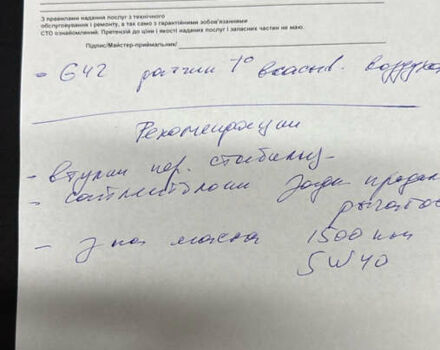 З правилами надання послуг з технічного
обслуговування і ремонту, а так само з гарантійними зобов'язаннями
СТО ознайомлений. Претензій до ціни і якості наданих послуг і запасних частин не маю.
Підпис/Майстер-приймальник/
- G42 датчик t° всасыв. воздуха
Рекомендации
- втулки пер. стабилиз.
- сайлентблоки задн продол
рычагов
- Зна масла 1500 км
5W40